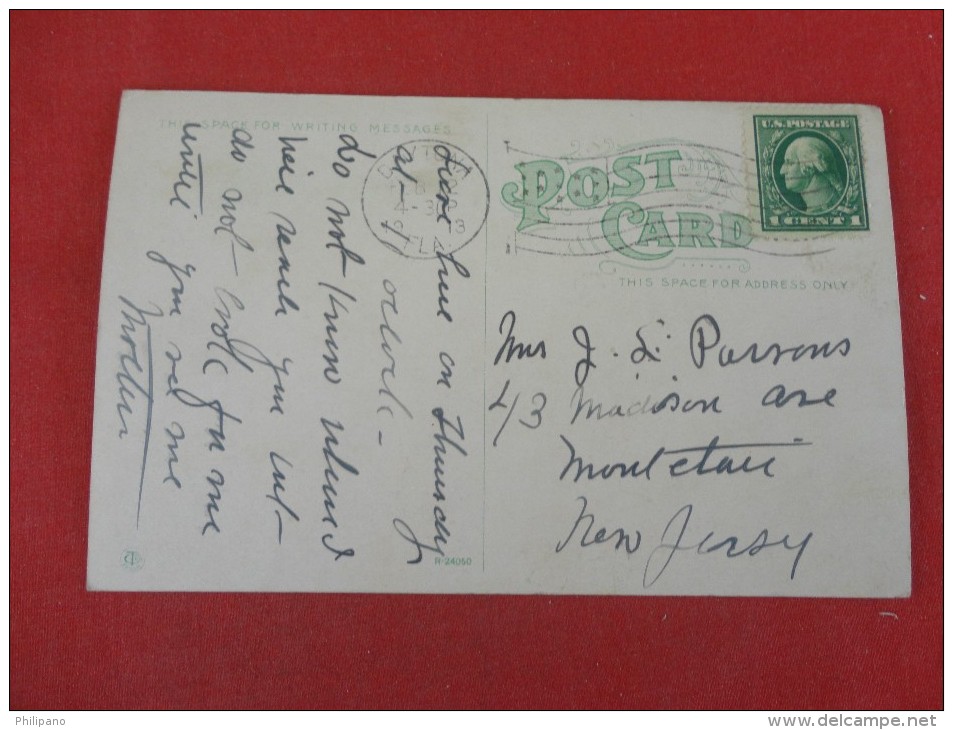 THIS SPACE FOR WRITING MESSAGES
POST
CARD
THIS SPACE FOR ADDRESS ONLY
U.S. POSTAGE
1 CENT 1
FLA
here on Thursday
at
do not know when I
will reach you but
do not look for me
until you see me
Mother
Mrs J. S. Parsons
43 Madison ave
Montclair
New Jersey
R-24050
Philipano
www.delcampe.net